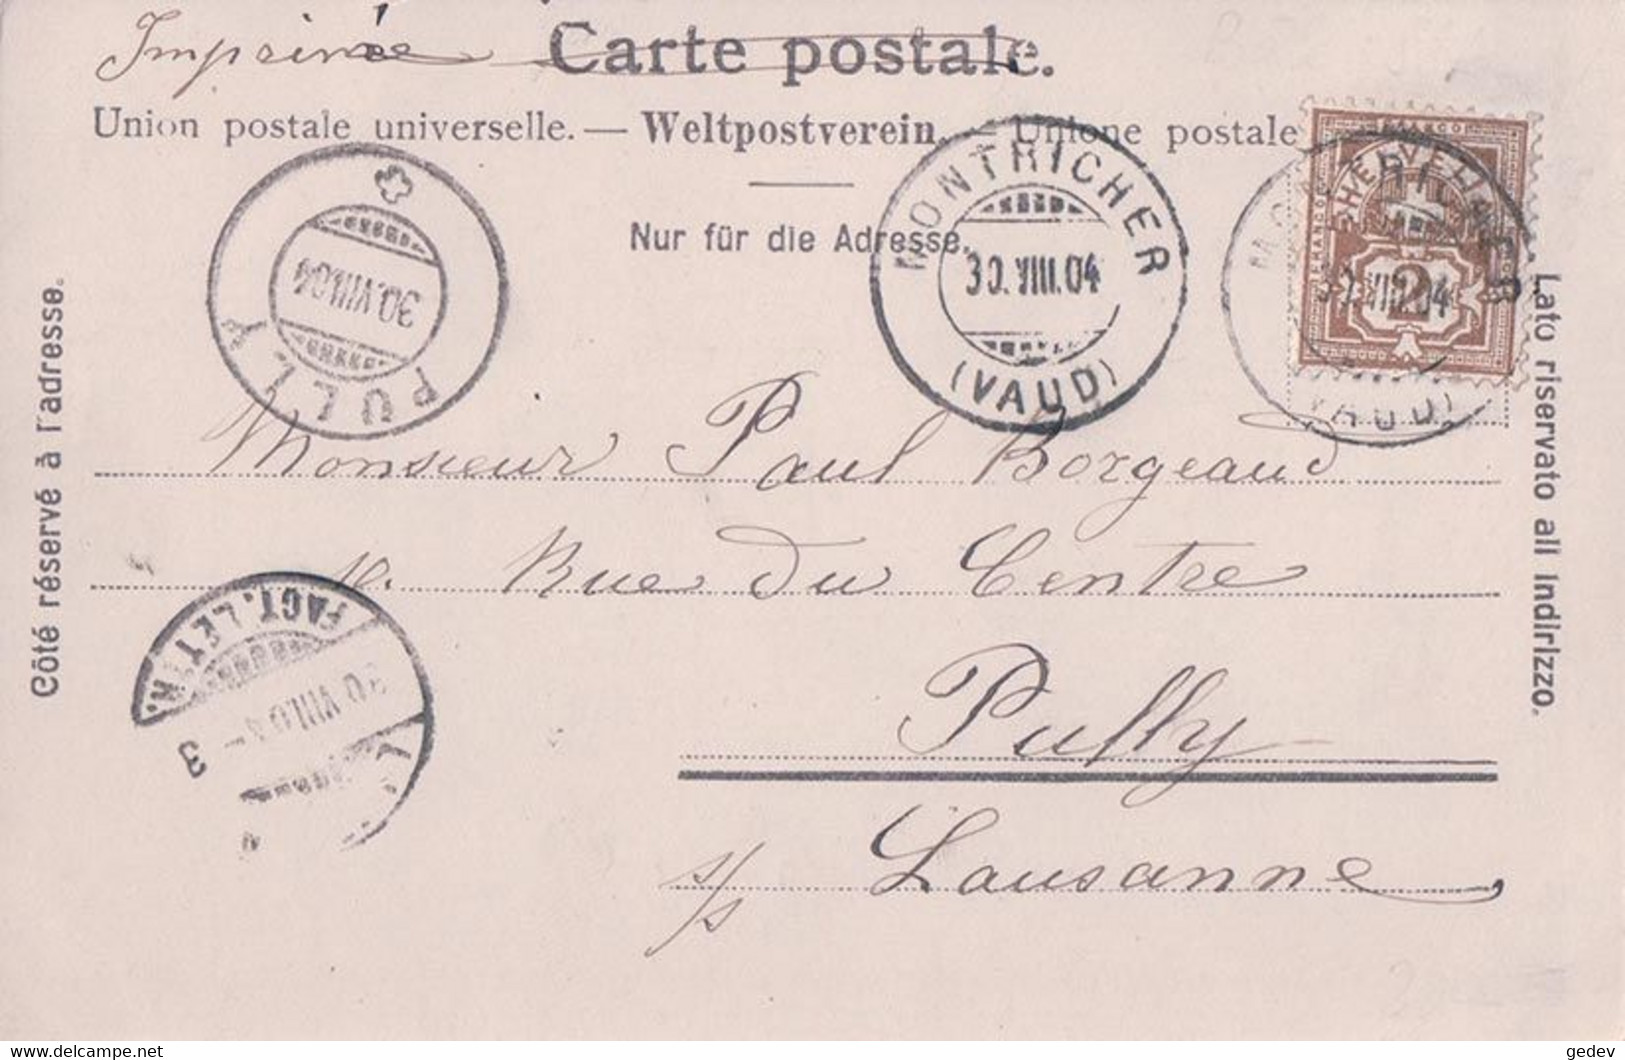 Imprimé Carte postale.
Union postale universelle. — Weltpostverein. — Unione postale
Nur für die Adresse.
Côté réservé à l'adresse.
Lato riservato all indirizzo.
PULLY
30.VIII.04
MONTRICHER
30.VIII.04
(VAUD)
FRANCO
HELVETIA
2
30.VIII.04
(VAUD)
Monsieur Paul Borgeaud
Rue du Centre
Pully
s/s Lausanne
FACT. LETTR.
30.VIII.04
3
gedev